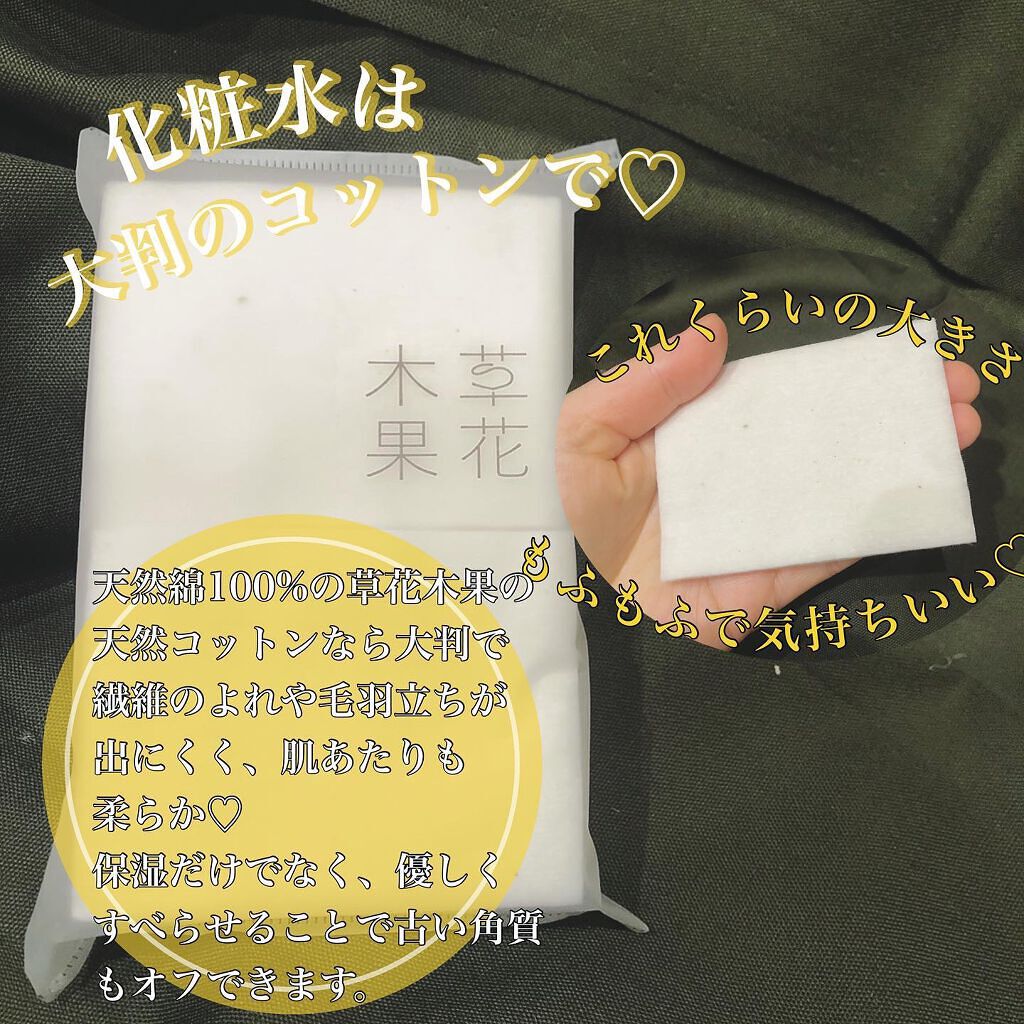 化粧水は
大判のコットンで♡
草花
木果
これくらいの大きさ
もふもふで気持ちいい♡
天然綿100%の草花木果の
天然コットンなら大判で
繊維のよれや毛羽立ちが
出にくく、肌あたりも
柔らか♡
保湿だけでなく、優しく
すべらせることで古い角質
もオフできます。